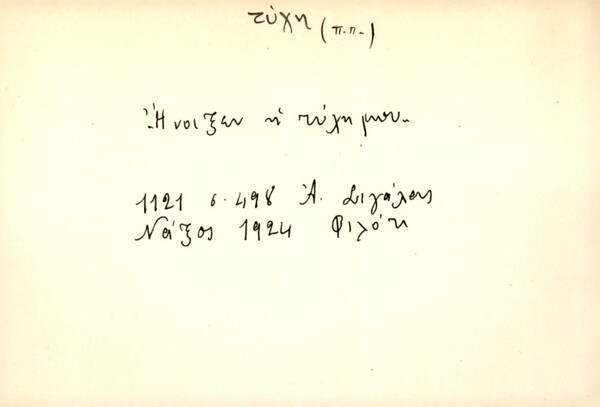 τύχη (π.π.)
Ἤνοιξεν ἡ τύχη μου.
1121 σ. 498 Ἀ. Σιγάλας
Νάξος 1924 Φιλότι